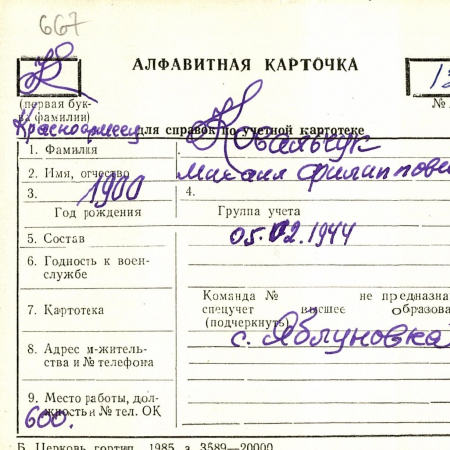 667
К
АЛФАВИТНАЯ КАРТОЧКА
(первая бук-
ва фамилии)
№
Красноармеец
для справок по учетной картотеке
1. Фамилия Ковальчук
2. Имя, отчество Михаил Филиппови
3. 1900 4.
Год рождения Группа учета
5. Состав 05.02.1944
6. Годность к воен-
службе
Команда № не предназна
7. Картотека спецучет высшее образова
(подчеркнуть)
8. Адрес м-житель-
ства и № телефона
с. Яблуновка
9. Место работы, дол-
жность и № тел. ОК
600.
Б. Церковь гортип. 1985 з. 3589—20000